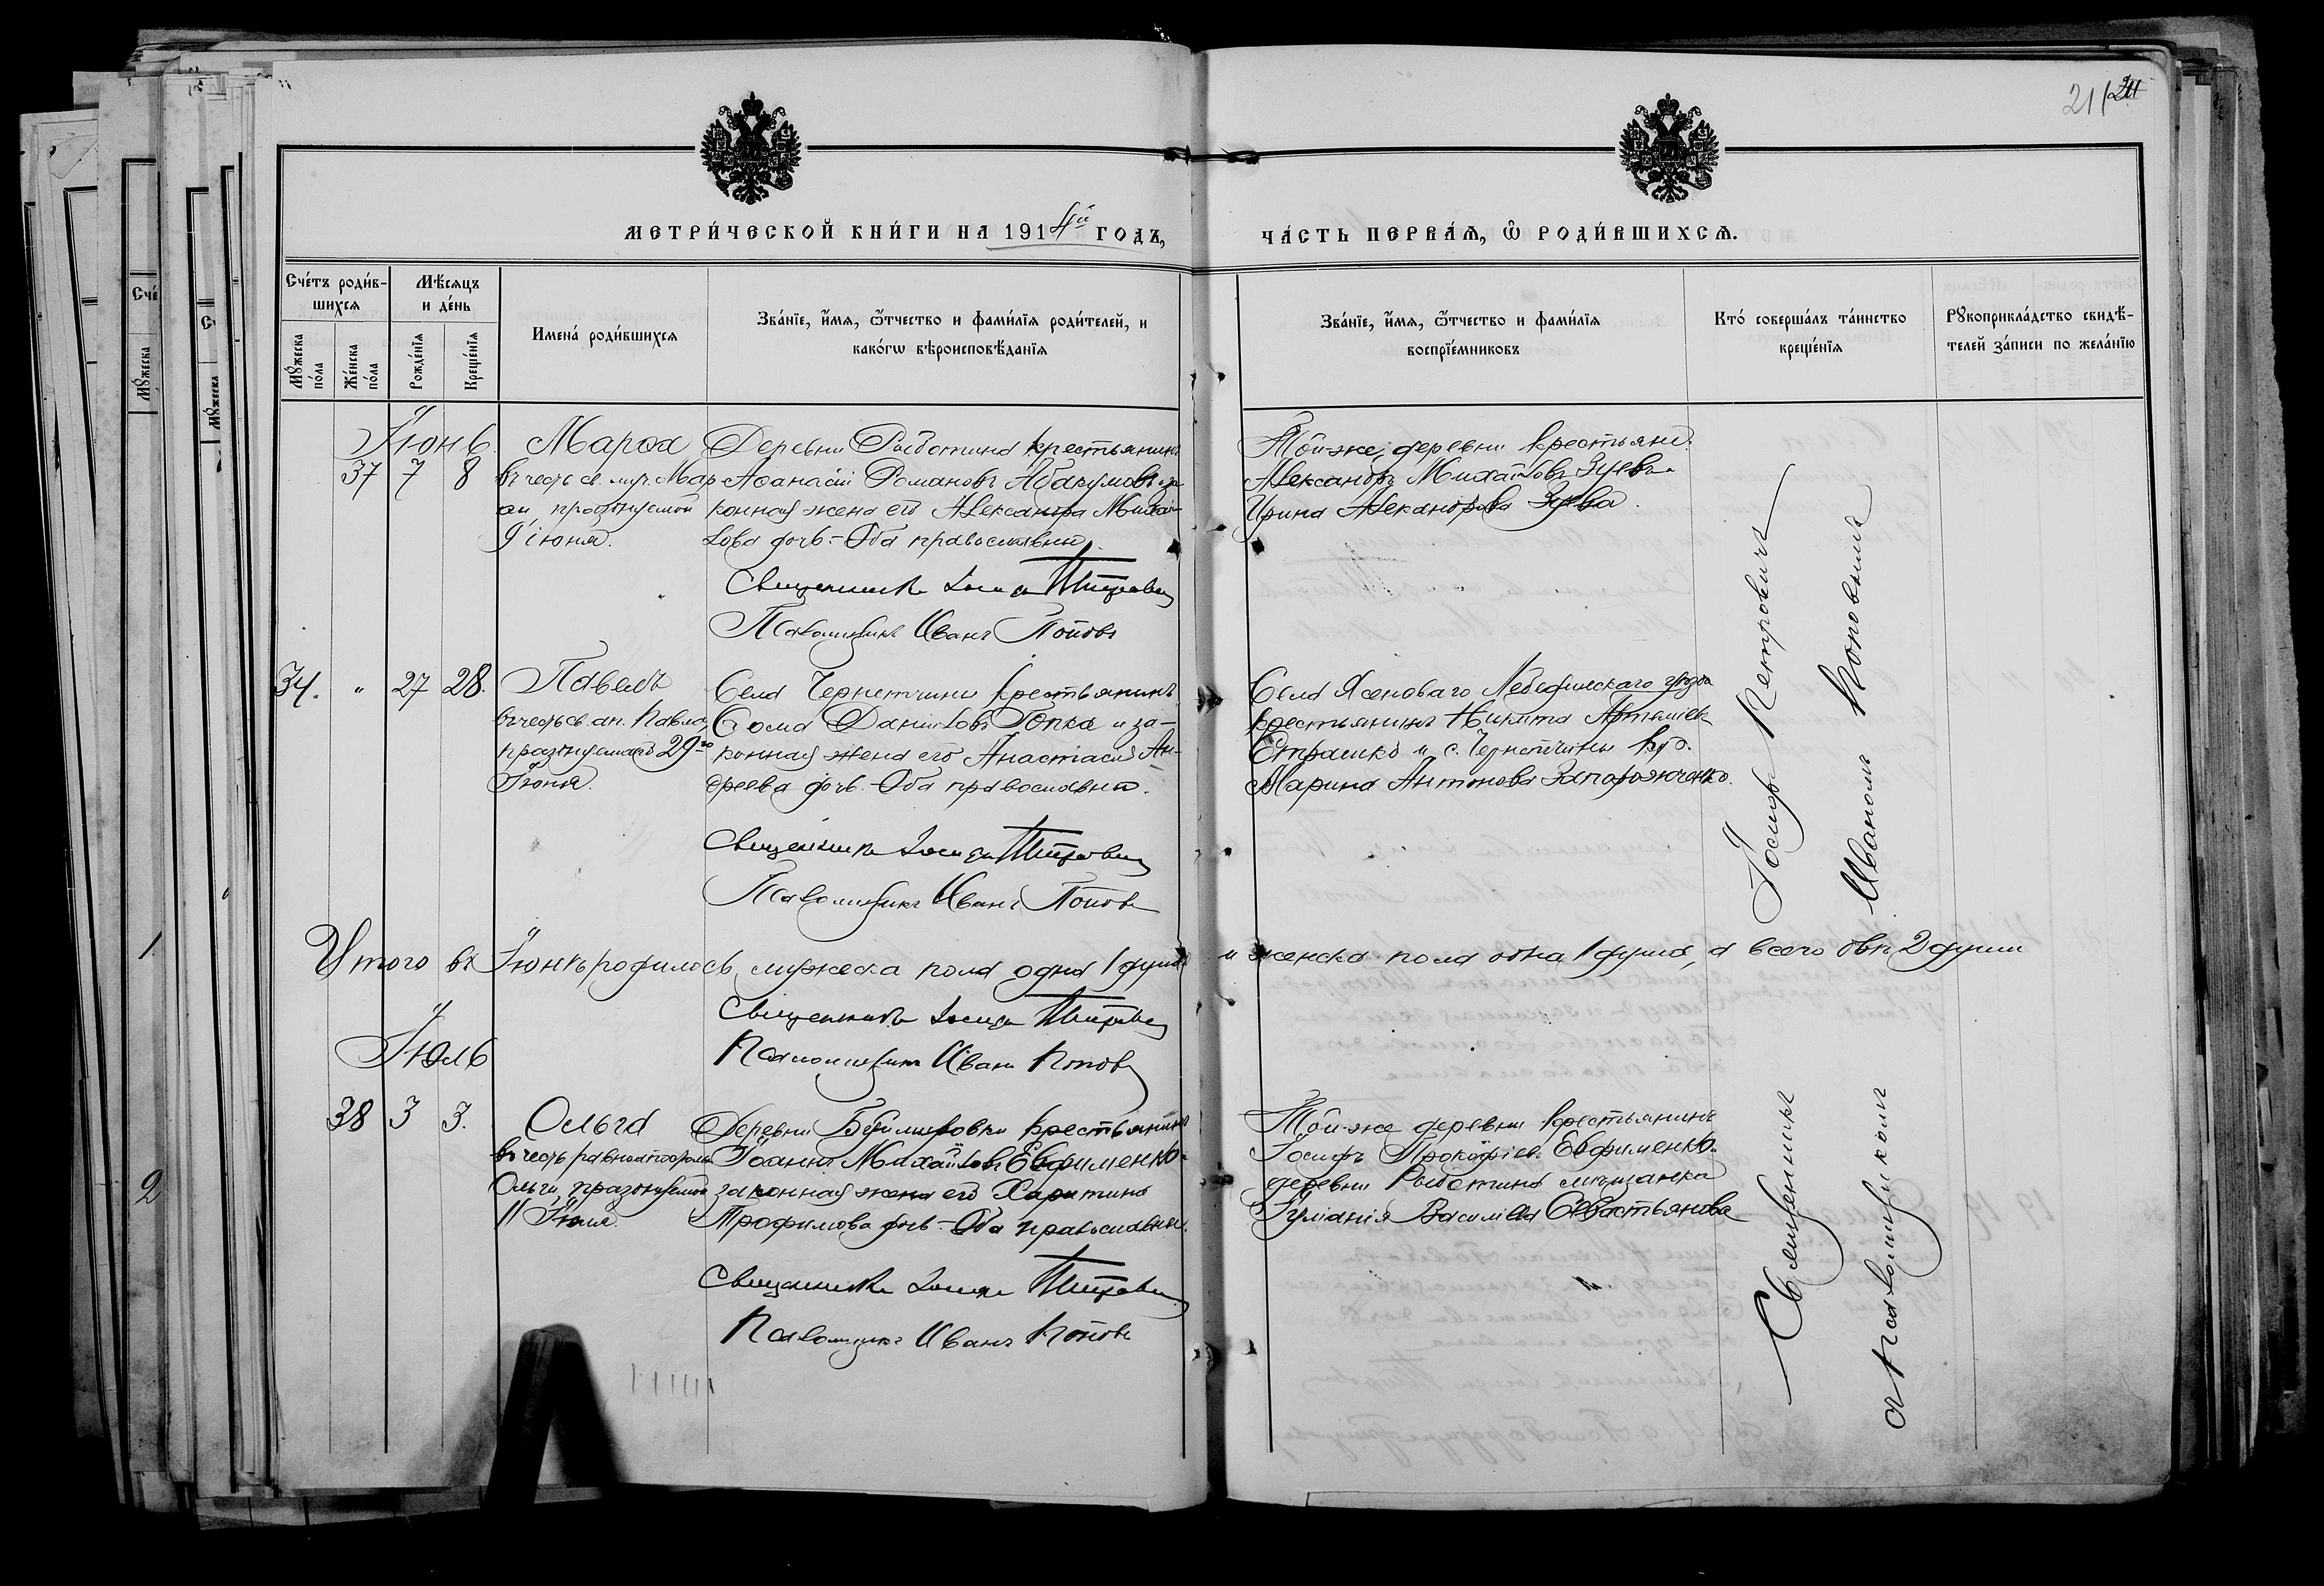 211
МЕТРИ́ЧЕСКОЙ КНИ́ГИ НА 1914й ГОДЪ,
ЧА́СТЬ ПЕРВА́Я, Ѡ РОДИ́ВШИХСЯ.
Сче́тъ роди́в-
шихся
Мѣ́сяцъ
и де́нь
Мꙋ́жеска
по́ла
Же́нска
по́ла
Рожде́нїя
Креще́нїя
Имена́ роди́вшихся
Зва́нїе, и́мя, ѻ҆́тчество и фами́лїя роди́телей, и
како́гѡ вѣроисповѣ́данїя
Зва́нїе, и́мя, ѻ҆́тчество и фами́лїя
воспрїе́мниковъ
Кто́ соверша́лъ та́инство
креще́нїя
Рꙋкоприкла́дство свидѣ́-
телей за́писи по жела́нїю
Іюнь.
37 7 8
Марѳа
въ честь св. муч. Мар
ѳы, празднуемой
9 іюня.
Деревни Рыботина крестьянинъ
Аѳанасій Романовъ Абакумовъ и за
конная жена его Александра Михаи-
лова дочь. - Оба православные.
Священникъ Іосифъ Петровичъ
Псаломщикъ Иванъ Поповъ
Той-же деревни крестьяне:
Александръ Михаиловъ Зуевъ и
Ирина Алекандрова Зуева.
34. " 27 28.
Павелъ
въ честь св. ап. Павла,
празднуемаго 29-го
Іюня.
Села Чернетчины крестьянинъ
Ѳома Даніиловъ Гопка и за-
конная жена его Анастасія Ан-
дреева дочь. - Оба православные.
Священникъ Іосифъ Петровичъ
Псаломщикъ Иванъ Поповъ
Села Ясеноваго Лебединскаго уѣзда
крестьянинъ Никита Артеміевъ
Страшко и с. Чернетчины кр.
Марина Антонова Запорожченко.
Итого въ Іюнѣ родилось мужеска пола одна 1 душа и женска пола одна 1 душа, а всего обѣ 2 души
Священникъ Іосифъ Петровичъ
Псаломщикъ Иванъ Поповъ
Іюль
38 3 3.
Ольга
въ честь равноапостольн.
Ольги, празднуемой
11 Іюля.
Деревни Буймировки крестьянинъ
Іоаннъ Михаиловъ Евфименко и
законная жена его Харитина
Трофимова дочь. - Оба православные.
Священникъ Іосифъ Петровичъ
Псаломщикъ Иванъ Поповъ
Той-же деревни крестьянинъ
Іосифъ Прокофіевъ Евфименко и
деревни Рыботина мѣщанка
Іуліанія Василіева Севастьянова
Священникъ Іосифъ Петровичъ
съ псаломщикомъ Иваномъ Поповымъ
1.
2